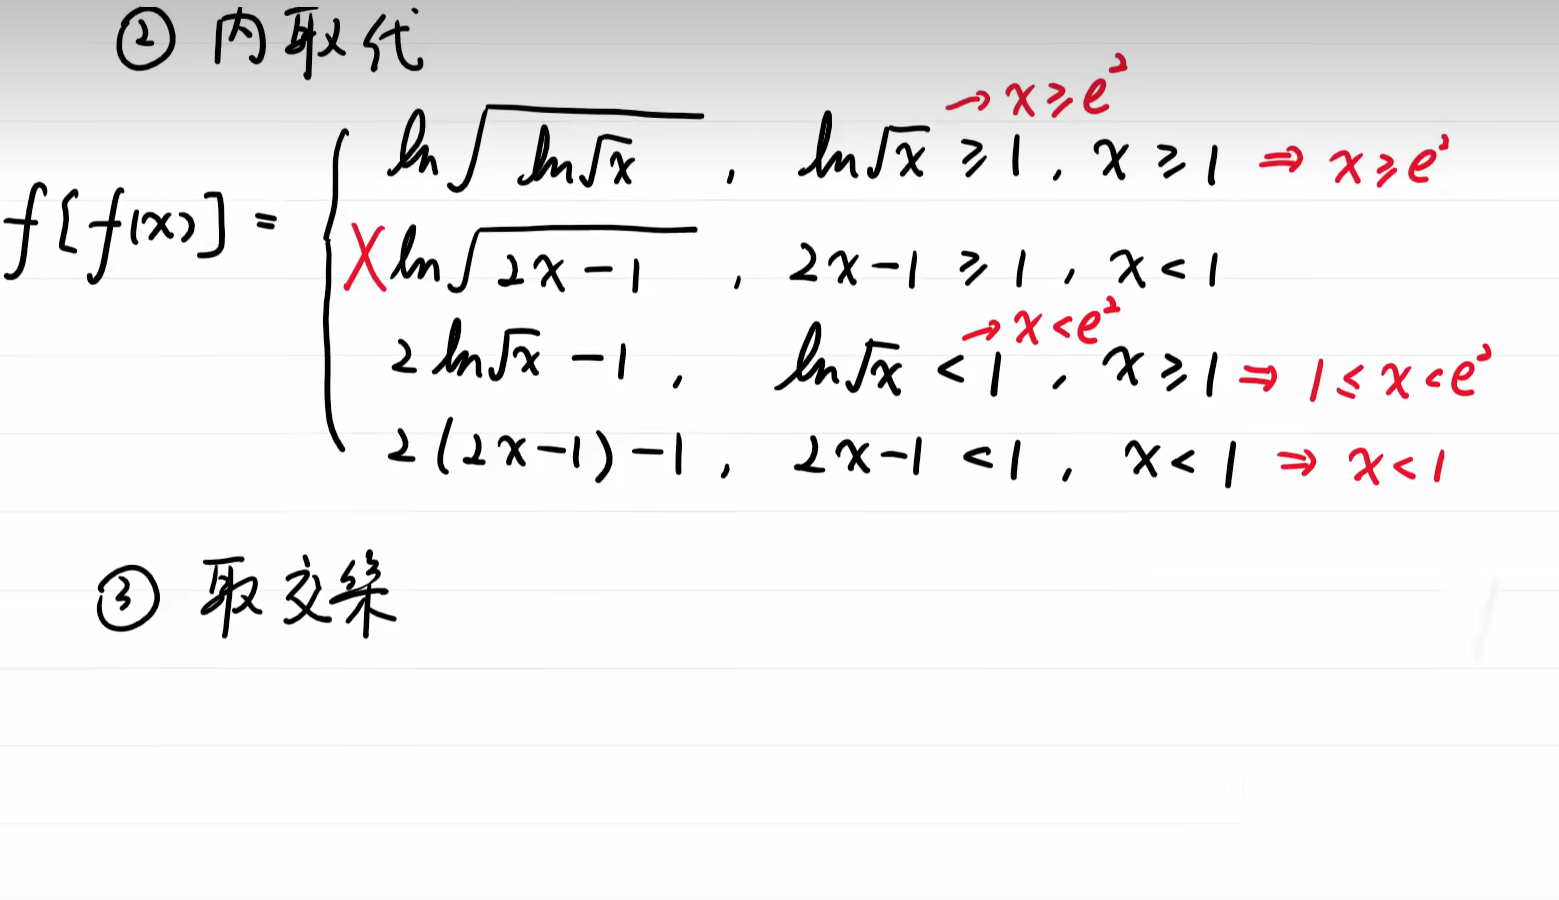 ② 内取代
→ x ≥ e²
f[f(x)] = { ln√(ln√x) , ln√x ≥ 1 , x ≥ 1 ⇒ x ≥ e²
X ln√(2x-1) , 2x-1 ≥ 1 , x < 1
→ x < e²
2ln√x - 1 , ln√x < 1 , x ≥ 1 ⇒ 1 ≤ x < e²
2(2x-1)-1 , 2x-1 < 1 , x < 1 ⇒ x < 1
③ 取交集